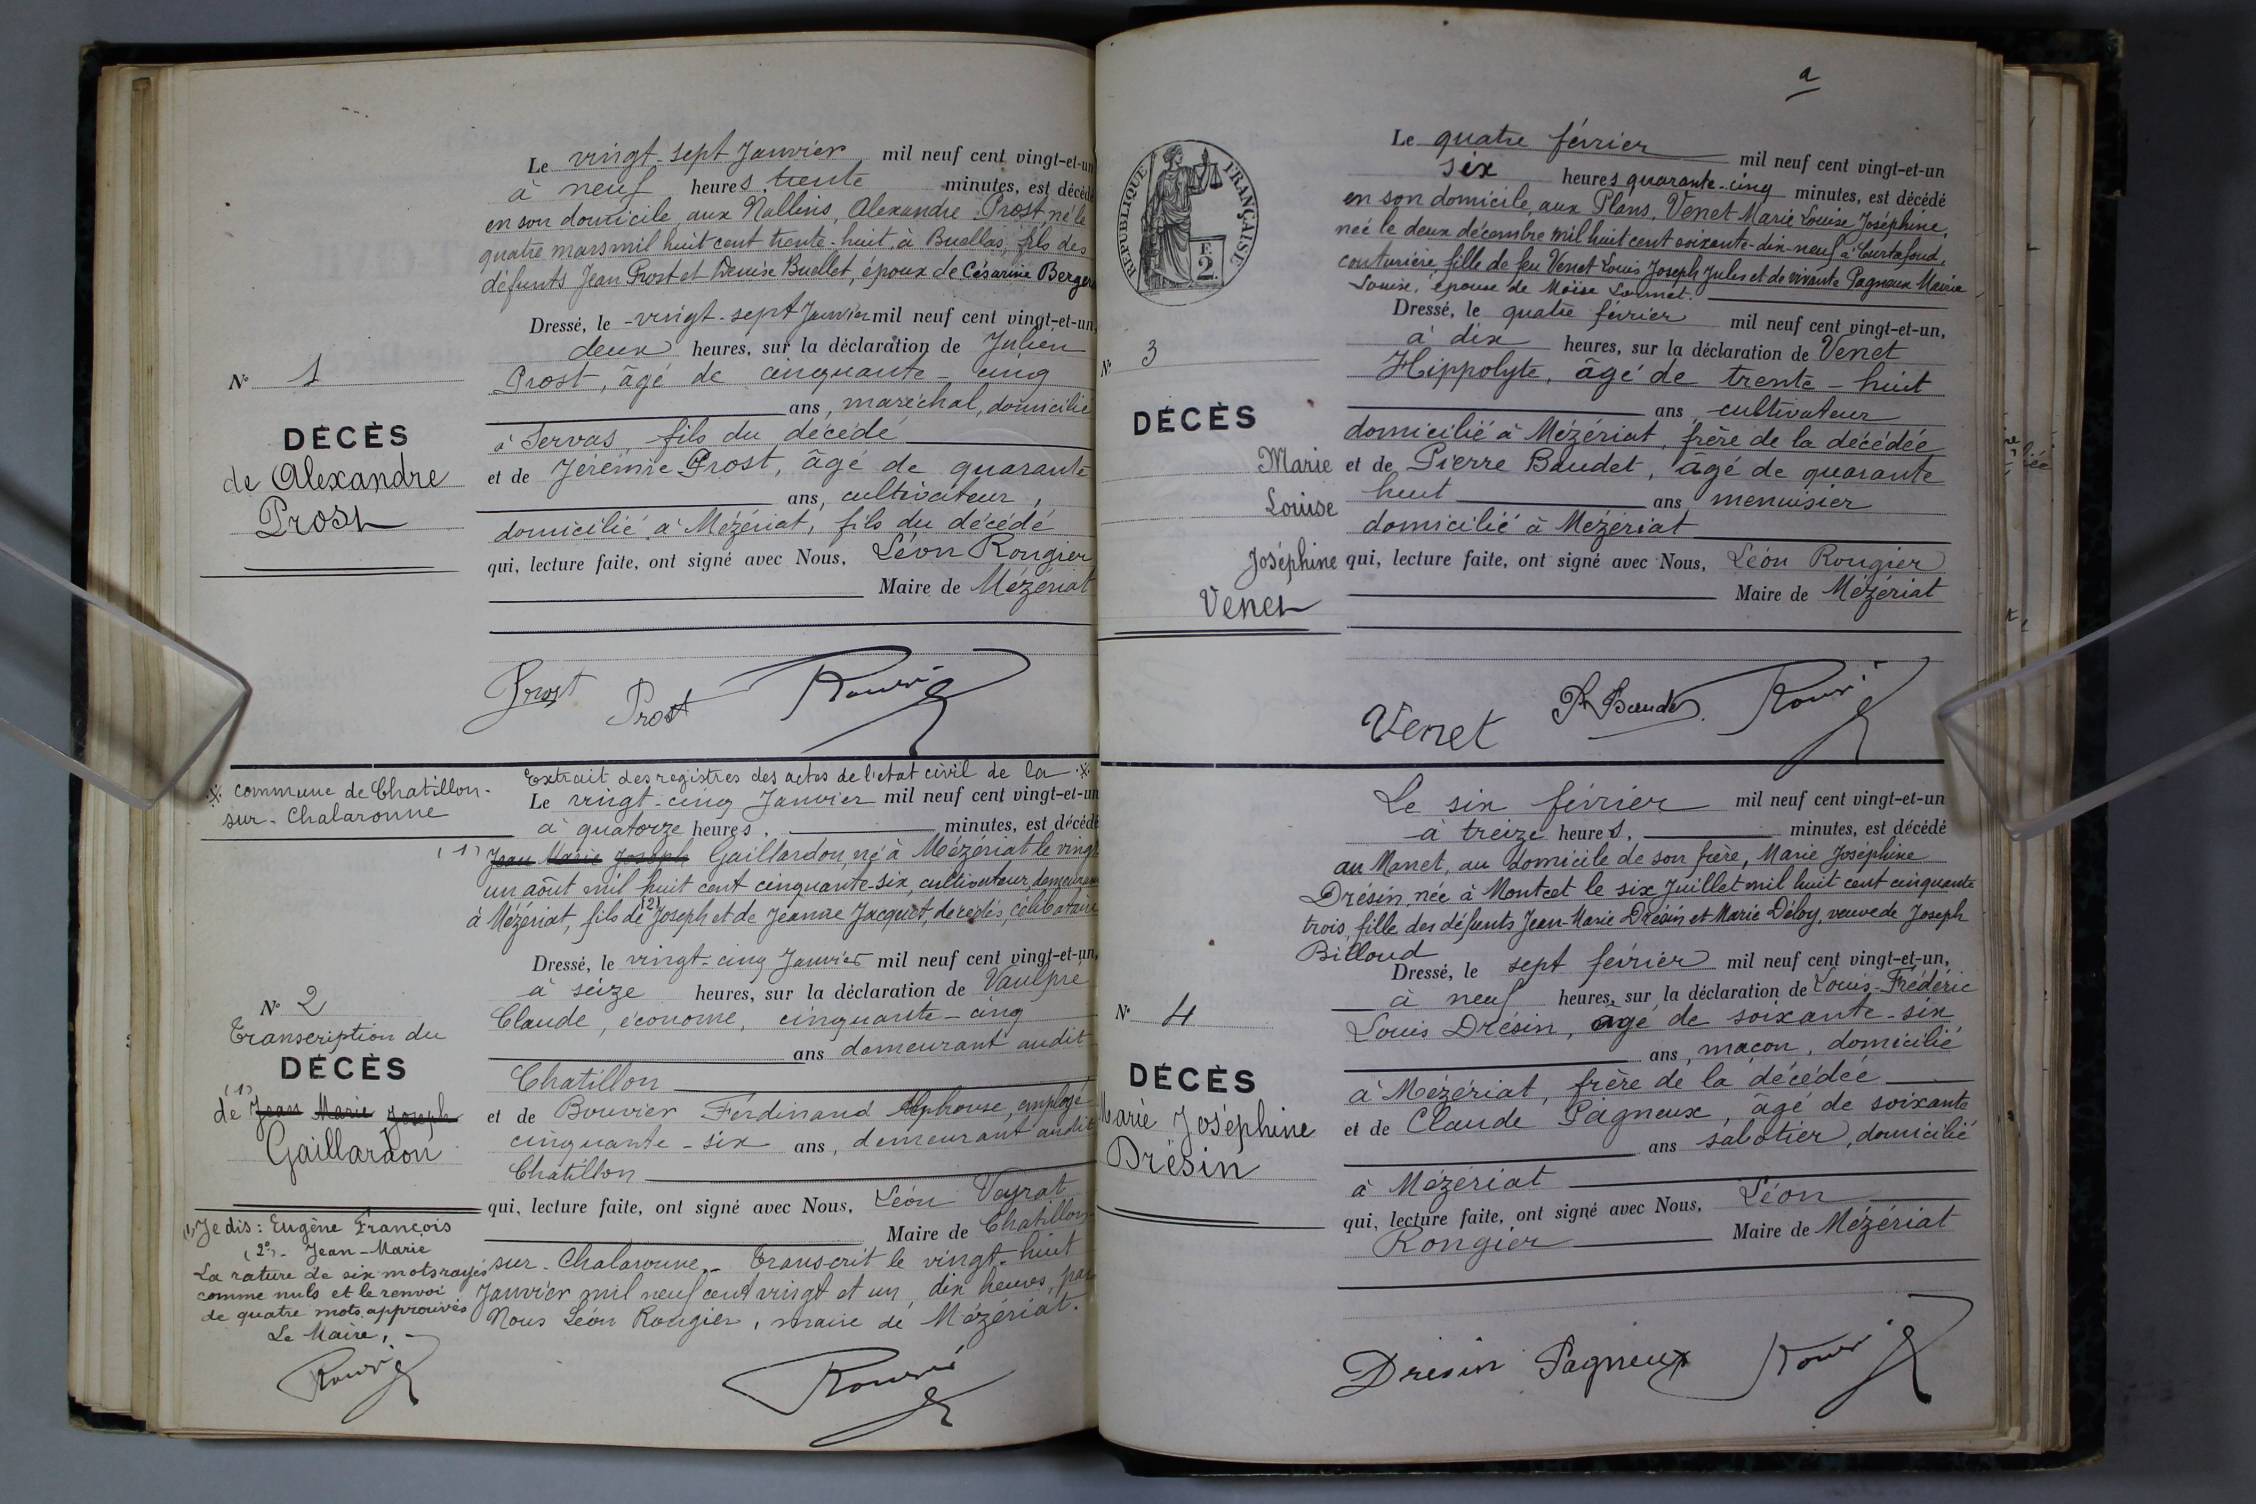 Le vingt-sept Janvier mil neuf cent vingt-et-un
à neuf heures trente minutes, est décédé
en son domicile aux Nallins, Alexandre Prost né le
quatre mars mil huit cent trente-huit, à Buellas, fils des
défunts Jean Prost et Denise Buellet, époux de Césarine Berger
Dressé, le vingt-sept Janvier mil neuf cent vingt-et-un,
deux heures, sur la déclaration de Julien
Prost, âgé de cinquante-cinq
ans, maréchal, domicilié
à Servas, fils du décédé
et de Jérémie Prost, âgé de quarante
ans, cultivateur,
domicilié à Mézériat, fils du décédé
qui, lecture faite, ont signé avec Nous, Léon Rougier
Maire de Mézériat
N° 1
DÉCÈS
de Alexandre
Prost
Prost Prost
※ commune de Chatillon-
sur-Chalaronne
Extrait des registres des actes de l'état civil de la ※
Le vingt-cinq Janvier mil neuf cent vingt-et-un
à quatorze heures, minutes, est décédé
(1) Jean Marie Joseph Gaillardon, né à Mézériat le vingt
un août mil huit cent cinquante-six, cultivateur, demeurant
à Mézériat, fils de (2) Joseph et de Jeanne Jacquet, décédés, célibataire
Dressé, le vingt-cinq Janvier mil neuf cent vingt-et-un,
à seize heures, sur la déclaration de Vaulpré
Claude, économe, cinquante-cinq
ans demeurant audit
Chatillon
et de Bouvier Ferdinand Alphonse, employé
cinquante-six ans, demeurant audit
Chatillon
qui, lecture faite, ont signé avec Nous, Léon Veyrat
Maire de Chatillon
sur-Chalaronne. Transcrit le vingt-huit
Janvier mil neuf cent vingt et un, dix heures, par
Nous Léon Rougier, maire de Mézériat.
N° 2
Transcription du
DÉCÈS
(1)
de Jean Marie Joseph
Gaillardon
(1) Je dis: Eugène François
(2°) - Jean-Marie
La rature de six mots rayés
comme nuls et le renvoi
de quatre mots approuvés
Le Maire,
2
RÉPUBLIQUE FRANÇAISE
E
2
Le quatre février mil neuf cent vingt-et-un
six heures quarante-cinq minutes, est décédé
en son domicile, aux Plans, Venet Marie Louise Joséphine,
née le deux décembre mil huit cent soixante-dix-neuf à Curtafond,
couturière, fille de feu Venet Louis Joseph Jules et de vivante Pagneux Marie
Louise, épouse de Moïse
Dressé, le quatre février mil neuf cent vingt-et-un,
à dix heures, sur la déclaration de Venet
Hippolyte, âgé de trente-huit
ans, cultivateur
domicilié à Mézériat, frère de la décédée
et de Pierre Baudet, âgé de quarante
huit ans menuisier
domicilié à Mézériat
qui, lecture faite, ont signé avec Nous, Léon Rougier
Maire de Mézériat
N° 3
DÉCÈS
Marie
Louise
Joséphine
Venet
Venet P. Baudet
Le six février mil neuf cent vingt-et-un
à treize heures, minutes, est décédé
au Manet, au domicile de son frère, Marie Joséphine
Drésin, née à Montcet le six Juillet mil huit cent cinquante
trois, fille des défunts Jean-Marie Drésin et Marie Déloy, veuve de Joseph
Billoud
Dressé, le sept février mil neuf cent vingt-et-un,
à neuf heures, sur la déclaration de Louis-Frédéric
Louis Drésin, âgé de soixante-six
ans, maçon, domicilié
à Mézériat, frère de la décédée
et de Claude Pagneux, âgé de soixante
ans sabotier, domicilié
à Mézériat
qui, lecture faite, ont signé avec Nous, Léon
Rougier Maire de Mézériat
N° 4
DÉCÈS
Marie Joséphine
Drésin
Drésin Pagneux